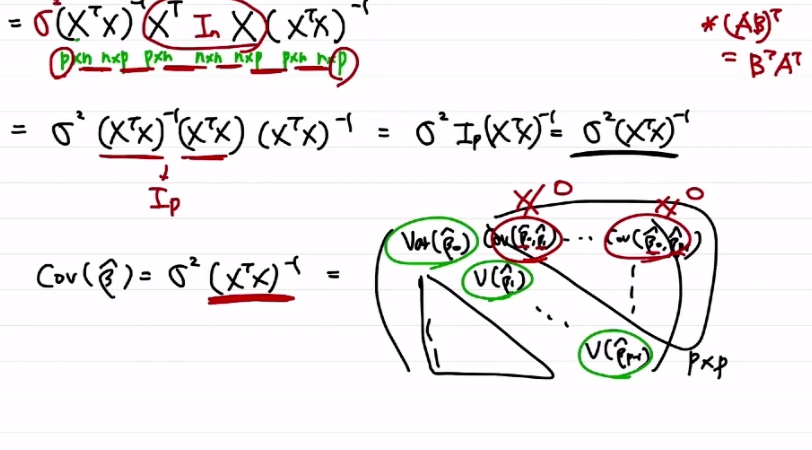 = σ² (XᵀX)⁻¹ Xᵀ Iₙ X (XᵀX)⁻¹
p×n n×p p×n n×n n×p p×n n×p
* (AB)ᵀ
= BᵀAᵀ
= σ² (XᵀX)⁻¹ (XᵀX) (XᵀX)⁻¹ = σ² Iₚ (XᵀX)⁻¹ = σ² (XᵀX)⁻¹
↓
Iₚ
0 0
Var(β̂₀) Cov(β̂₀, β̂₁) ... Cov(β̂₀, β̂ₚ₋₁)
Cov(β̂) = σ² (XᵀX)⁻¹ =
V(β̂₁)
V(β̂ₚ₋₁)
p×p